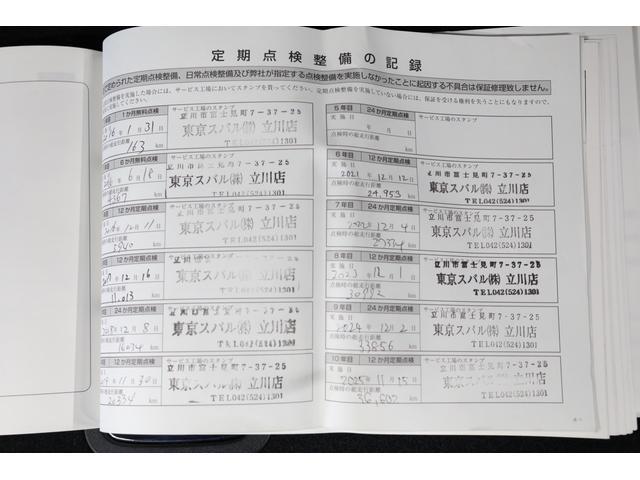 定期点検整備の記録
定められた定期点検整備、日常点検整備及び弊社が指定する点検整備を実施しなかったことに起因する不具合は保証修理致しません。
を実施した場合には、サービス工場においてスタンプを買ってください。定期点検整備を実施していない場合には、保証を受ける権利を失うこともなりますので、
実施してください。
1か月無料点検
サービス工場のスタンプ
立川市富士見町7-37-25
東京スバル㈱ 立川店
TEL042(524)1301
1月31日
163 km
6か月無料点検
サービス工場のスタンプ
立川市富士見町7-37-25
東京スバル㈱ 立川店
TEL042(524)1301
6月18日
km
12か月定期点検
サービス工場のスタンプ
立川市富士見町7-37-25
東京スバル㈱ 立川店
TEL042(524)1301
km
12か月定期点検
サービス工場のスタンプ
立川市富士見町7-37-25
東京スバル㈱ 立川店
TEL042(524)1301
12月16日
11,013 km
24か月定期点検
サービス工場のスタンプ
立川市富士見町7-37-25
東京スバル㈱ 立川店
TEL042(524)1301
12月8日
16034 km
12か月定期点検
サービス工場のスタンプ
立川市富士見町7-37-25
東京スバル㈱ 立川店
TEL042(524)1301
11月30日
20334 km
5年目 24か月定期点検
実施日
年 月 日
点検時の総走行距離
km
サービス工場のスタンプ
6年目 12か月定期点検
実施日
2021年12月12日
点検時の総走行距離
24,953 km
サービス工場のスタンプ
立川市富士見町7-37-25
東京スバル㈱ 立川店
TEL042(524)1301
7年目 24か月定期点検
実施日
12月4日
点検時の総走行距離
km
サービス工場のスタンプ
立川市富士見町7-37-25
東京スバル㈱ 立川店
TEL042(524)1301
8年目 12か月定期点検
実施日
2023年12月1日
点検時の総走行距離
km
サービス工場のスタンプ
立川市富士見町7-37-25
東京スバル㈱ 立川店
TEL042(524)1301
9年目 24か月定期点検
実施日
2024年12月2日
点検時の総走行距離
33856 km
サービス工場のスタンプ
立川市富士見町7-37-25
東京スバル㈱ 立川店
TEL042(524)1301
10年目 12か月定期点検
実施日
2025年11月15日
点検時の総走行距離
36,602 km
サービス工場のスタンプ
立川市富士見町7-37-25
東京スバル㈱ 立川店
TEL042(524)1301